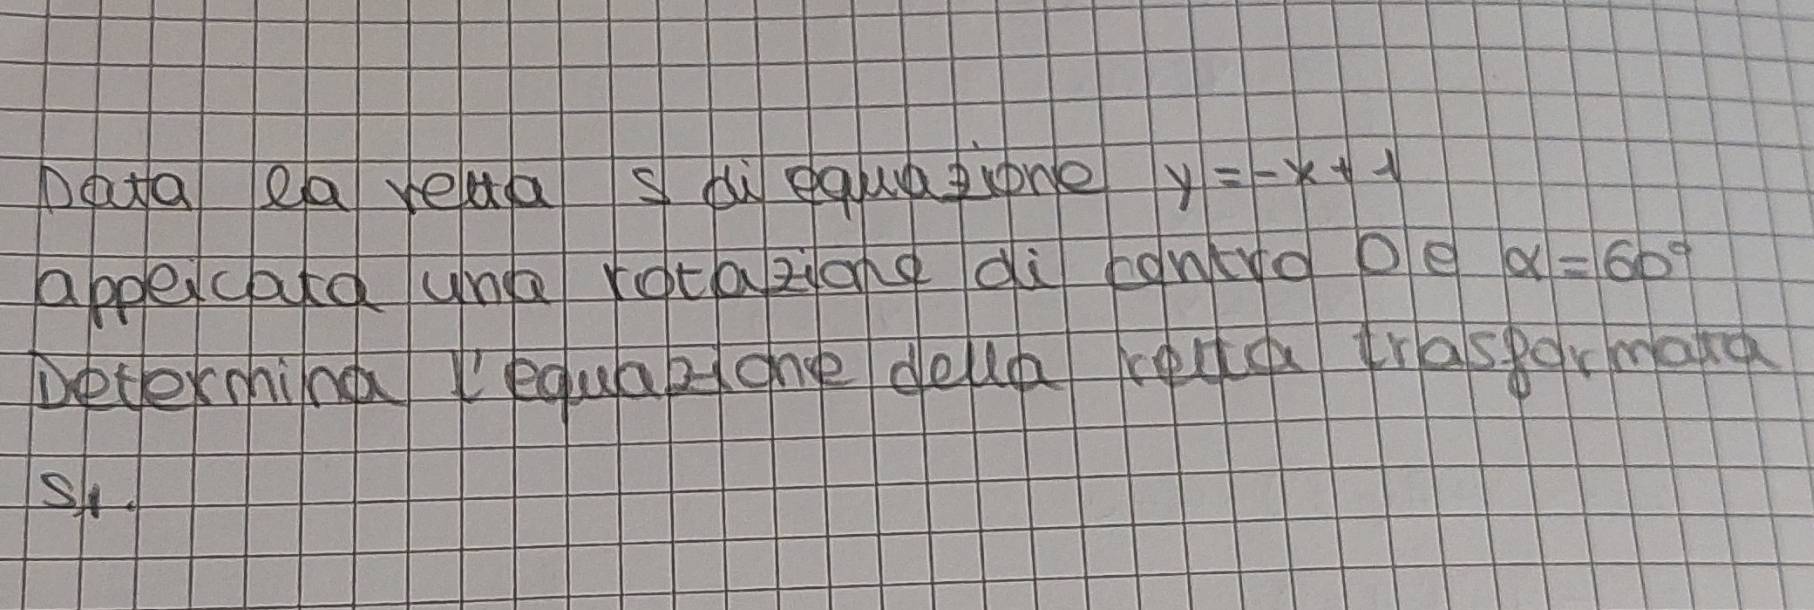 Data la retta s di equazione y = -x + 1
applicata una rotazione di centro O e α = 60°
Determina l'equazione della retta trasformata
s1.